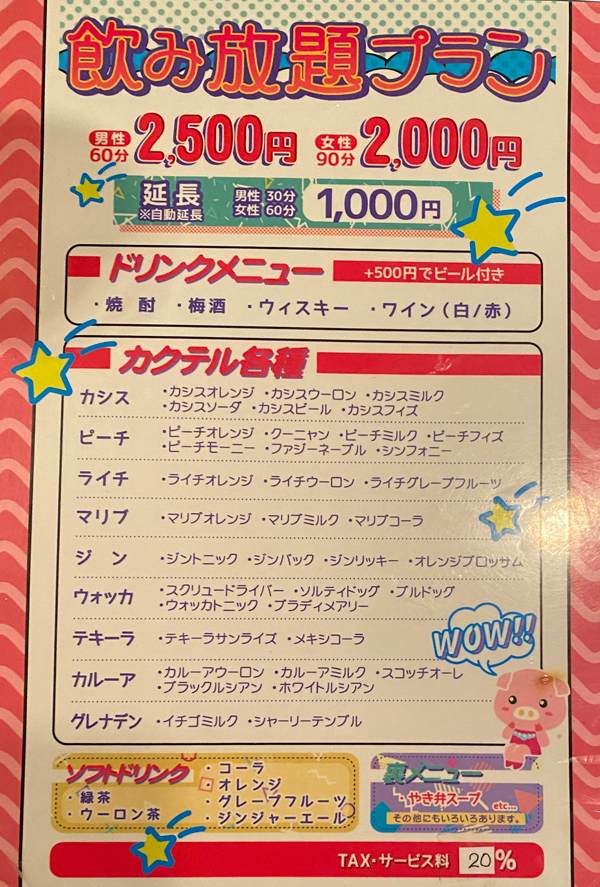 飲み放題プラン
男性 60分 2,500円 女性 90分 2,000円
延長 ※自動延長 男性 30分 女性 60分 1,000円
ドリンクメニュー +500円でビール付き
・焼酎 ・梅酒 ・ウィスキー ・ワイン(白/赤)
カクテル各種
カシス ・カシスオレンジ ・カシスウーロン ・カシスミルク
・カシスソーダ ・カシスビール ・カシスフィズ
ピーチ ・ピーチオレンジ ・クーニャン ・ピーチミルク ・ピーチフィズ
・ピーチモーニー ・ファジーネーブル ・シンフォニー
ライチ ・ライチオレンジ ・ライチウーロン ・ライチグレープフルーツ
マリブ ・マリブオレンジ ・マリブミルク ・マリブコーラ
ジン ・ジントニック ・ジンバック ・ジンリッキー ・オレンジブロッサム
ウォッカ ・スクリュードライバー ・ソルティドッグ ・ブルドッグ
・ウォッカトニック ・ブラディメアリー
テキーラ ・テキーラサンライズ ・メキシコーラ
WOW!!
カルーア ・カルーアウーロン ・カルーアミルク ・スコッチオーレ
・ブラックルシアン ・ホワイトルシアン
グレナデン ・イチゴミルク ・シャーリーテンプル
ソフトドリンク
・緑茶
・ウーロン茶
・コーラ
・オレンジ
・グレープフルーツ
・ジンジャーエール
裏メニュー
・やき弁スープ
etc...
その他にもいろいろあります。
TAX・サービス料 20%